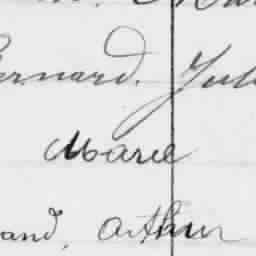 Bernard. Jul
Marie
and, Arthur